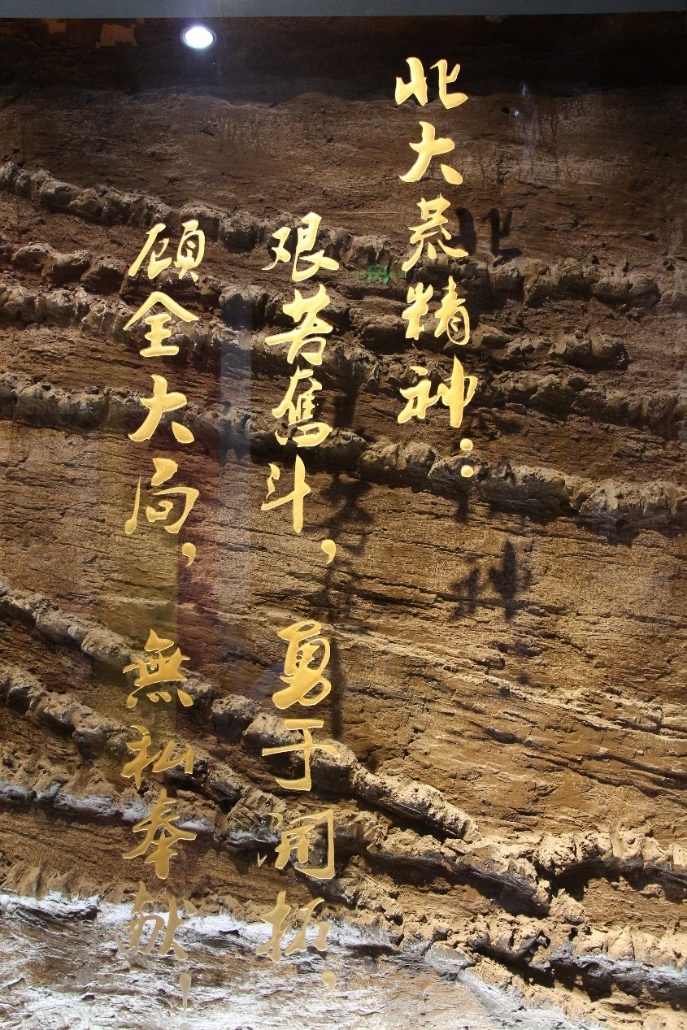 北大荒精神：
艰苦奋斗，勇于開拓，
顾全大局，無私奉献！